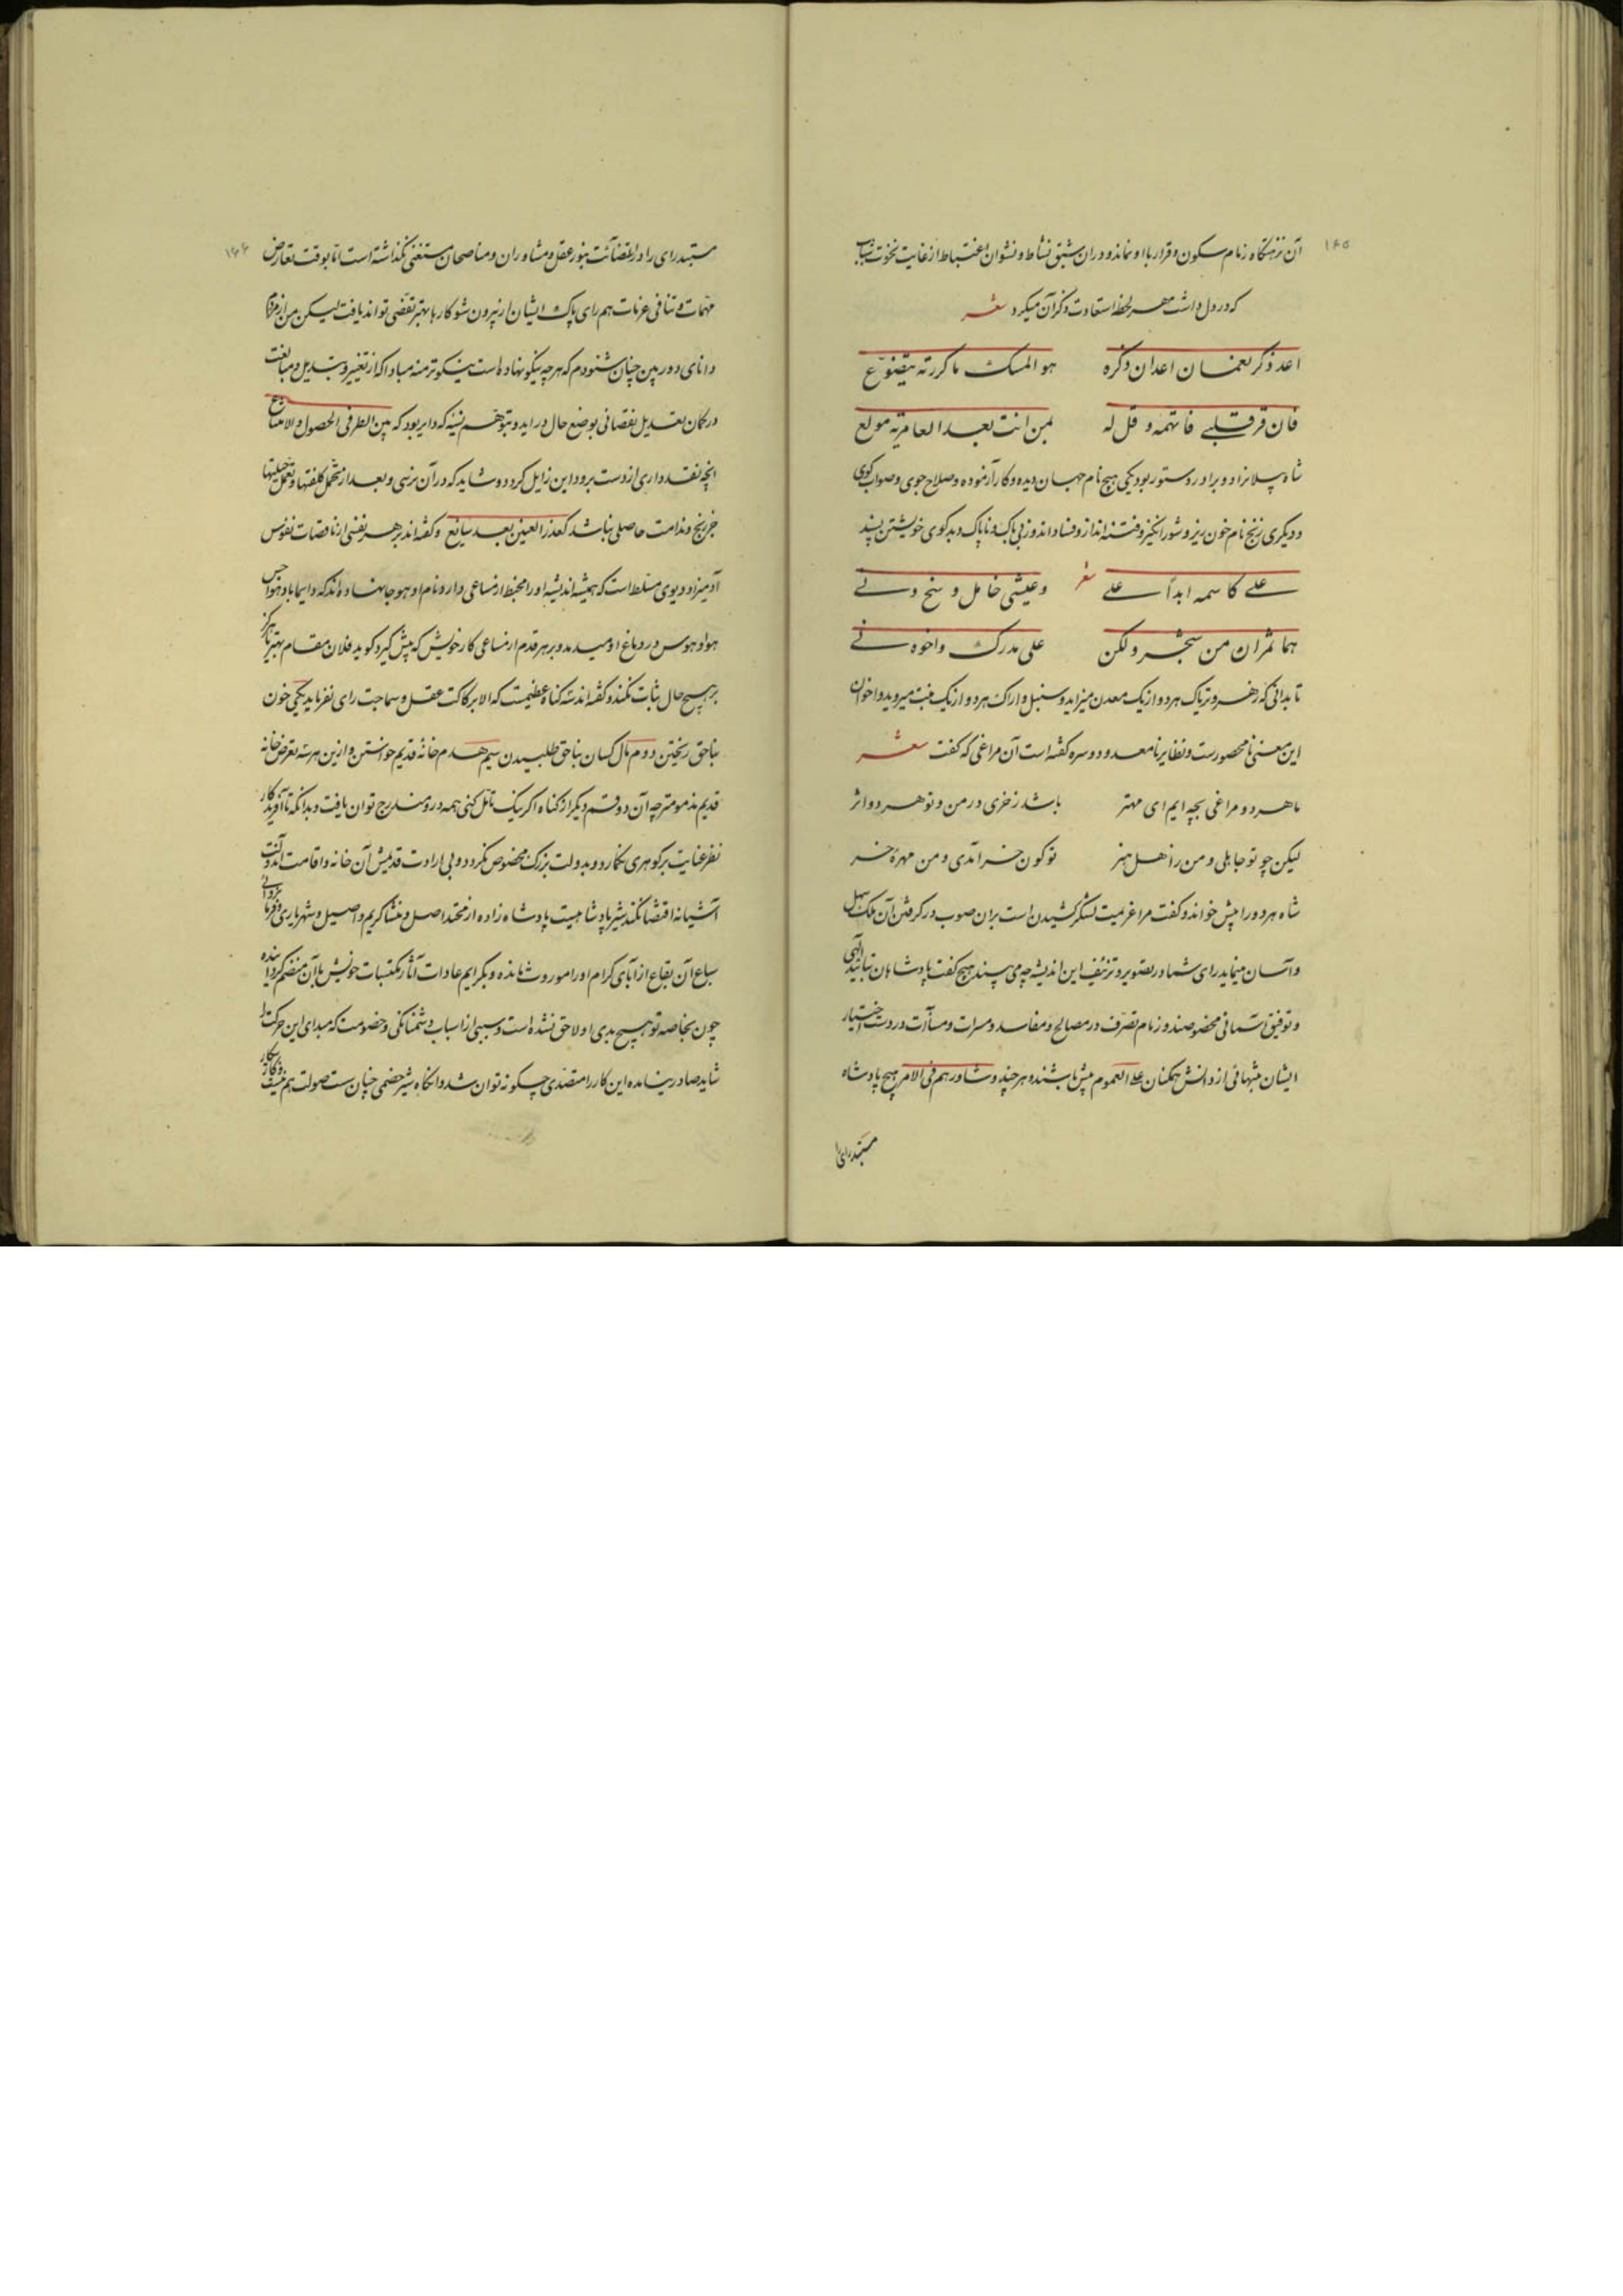 ۱۸۵
آن نزهتگاه زمام سکون و قرار با او نماند و در آن شبق نشاط و نشوان اغتباط از غایت نخوت شباب
که در دل داشت هر لحظه استعادت ذکر آن میکرد شعر
اعد ذکر نعمان اعد ان ذکره هو المسک ما کررته یتضوّع
فان قر قلبی فاتهمه و قل له بمن انت بعد العامریة مولع
شاه پیلانرا دو برادر دستور بود یکی هیج نام جهان دیده و کار آزموده و صلاح جوی و صواب کوی
و دیکری زنج نام خون ریز و شور انکیز و فتنه انداز و فساد اندوز بی باک و ناپاک و بد کوی خویشتن پسند
علی کاسمه ابداً علی شعر و عیشی خامل و سنح دنی
هما ثمران من شجر و لکن علی مدرک و اخوه نی
تا بدانی که زهر و تریاک هر دو از یک معدن میزاید و سنبل و اراک هر دو از یک منبت میروید و اخوان
این معنی نامحصورست و نظایر نامعدود و سره کفته است آن مراغی که کفت شعر
ما هر دو مراغی بچه ایم ای مهتر باشد ز خری در من و تو هر دو اثر
لیکن چو تو جاهلی و من ز اهل هنر تو کون خر آمدی و من مهره خر
شاه هر دو را پیش خواند و کفت مرا عزیمت لشکر کشیدن است بر آن صوب در کرفتن آن ملک سهل
و آسان مینماید رای شما در تصویر و تزئیف این اندیشه چه می بیند هیج کفت پادشاهان بتایید الهی
و توفیق آسمانی مخصوصند و زمام تصرف در مصالح و مفاسد و مسرات و مساآت در دست اختیار
ایشان منتهائی از دانش همکنان علی العموم بیش باشند و هر چند و شاورهم فی الامر هیچ پادشاه
مستبد رای را
۱۸۶
مستبد رای را در اقتضائت بنور عقل و مشاوران و مناصحان مستغنی نکذاشته است اما بوقت تعارض
مهمات و تنافی عزمات هم رای پاک ایشان از بیرون شو کارها بهتر تفصی تواند یافت لیکن من از مردم
دانای دوربین چنان شنودم که هر چه نیکو نهاده است نیکوتر منه مبادا که از تغییر و تبدیل و مبالغت
در کمان تعدیل نقصانی بوضع حال در آید و بتوهم نسیه که دایر بود که بین الطرفی الحصول و الامتناع
انچه نقد داری از دست برود این زایل کردد و شاید که در آن نرسی و بعد از تحمل کلفتها و تعمل حیلتها
جز رنج و ندامت حاصلی نباشد کعذر العینین بعد بیاتع و کفته اند بر هر نفسی از ناقصات نفوس
آدمیزاد دیوی مسلط است که همیشه اندیشه او را مخبط از مساعی دارد و نام او هوجا نهاده اند که دایما باد هواجس
هوا و هوس در دماغ او میدمد و بر هر قدم از مساعی کار خویش که پیش کیرد کوید فلان مقام بهتر تا هرکز
بر هیچ حال ثبات نکند و کفته اند سه کناه عظیمست که الا برکاکت عقل و سماجت رای نفرماید یکی خون
بناحق ریختن دوم مال کسان بناحق طلبیدن سیم هدم خانه قدیم خواستن و ازین هر سه تعرض خانه
قدیم مذمومتر چه آن دو قسم دیکر از کناه اکر نیک تامل کنی همه در و مندرج توان یافت و بدانکه تا آفریدکار
نظر عنایت بر کوهری نکمارد و بدولت بزرک مخصوص نکردد و بی ارادت قدیمش آن خانه و اقامت آن دولت
آشیانه اقتضا نکند شیر پادشاهیست پادشاه زاده از محتد اصل و منشأ کریم و اصیل و شهریاری و فرمانروائی
سباع آن بقاع از آبای کرام او را موروث مانده و بکرایم عادات آثار مکتسبات خویش با آن منضم کردانیده
چون بخاصه تو هیچ بدی او لاحق نشده است و سببی از اسباب دشمنانکی و خصومت که مبدای این حرکت را
شاید صادر نیامده این کار را متصدی چکونه توان شد و انکاه شیر خصمی چنان ست صولت